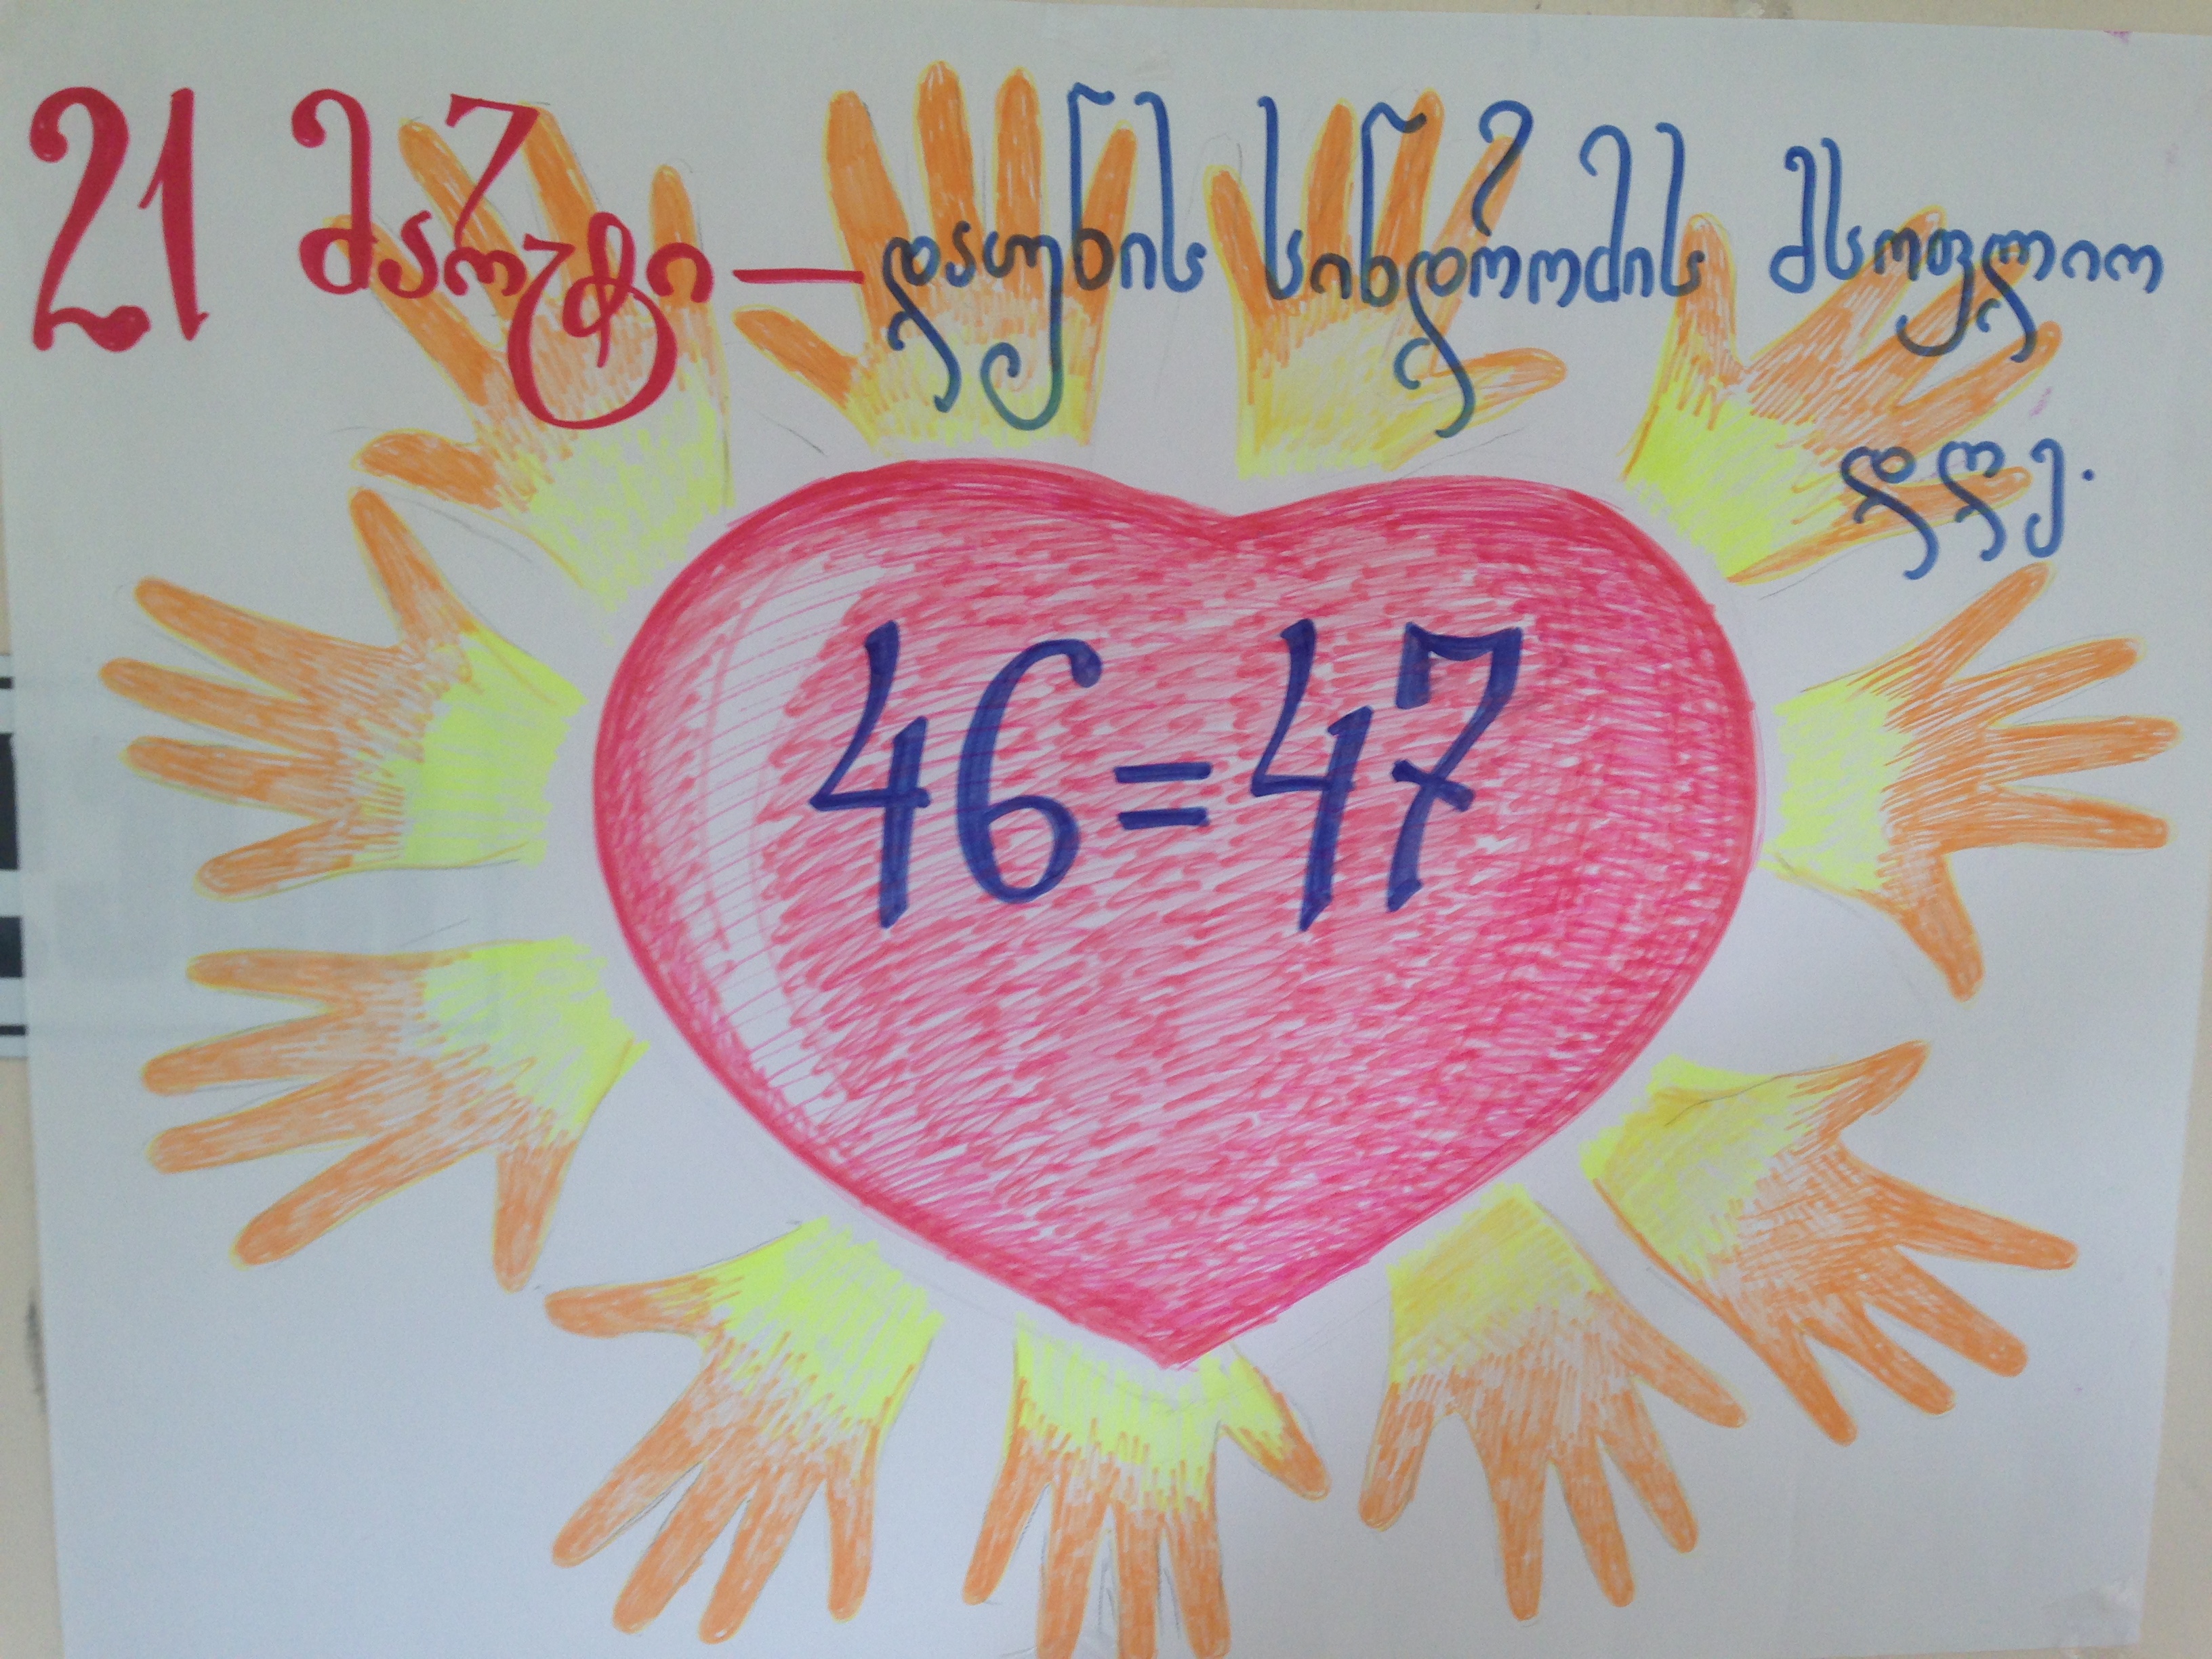 21 მარტი — დაუნის სინდრომის მსოფლიო
დღე.
46=47